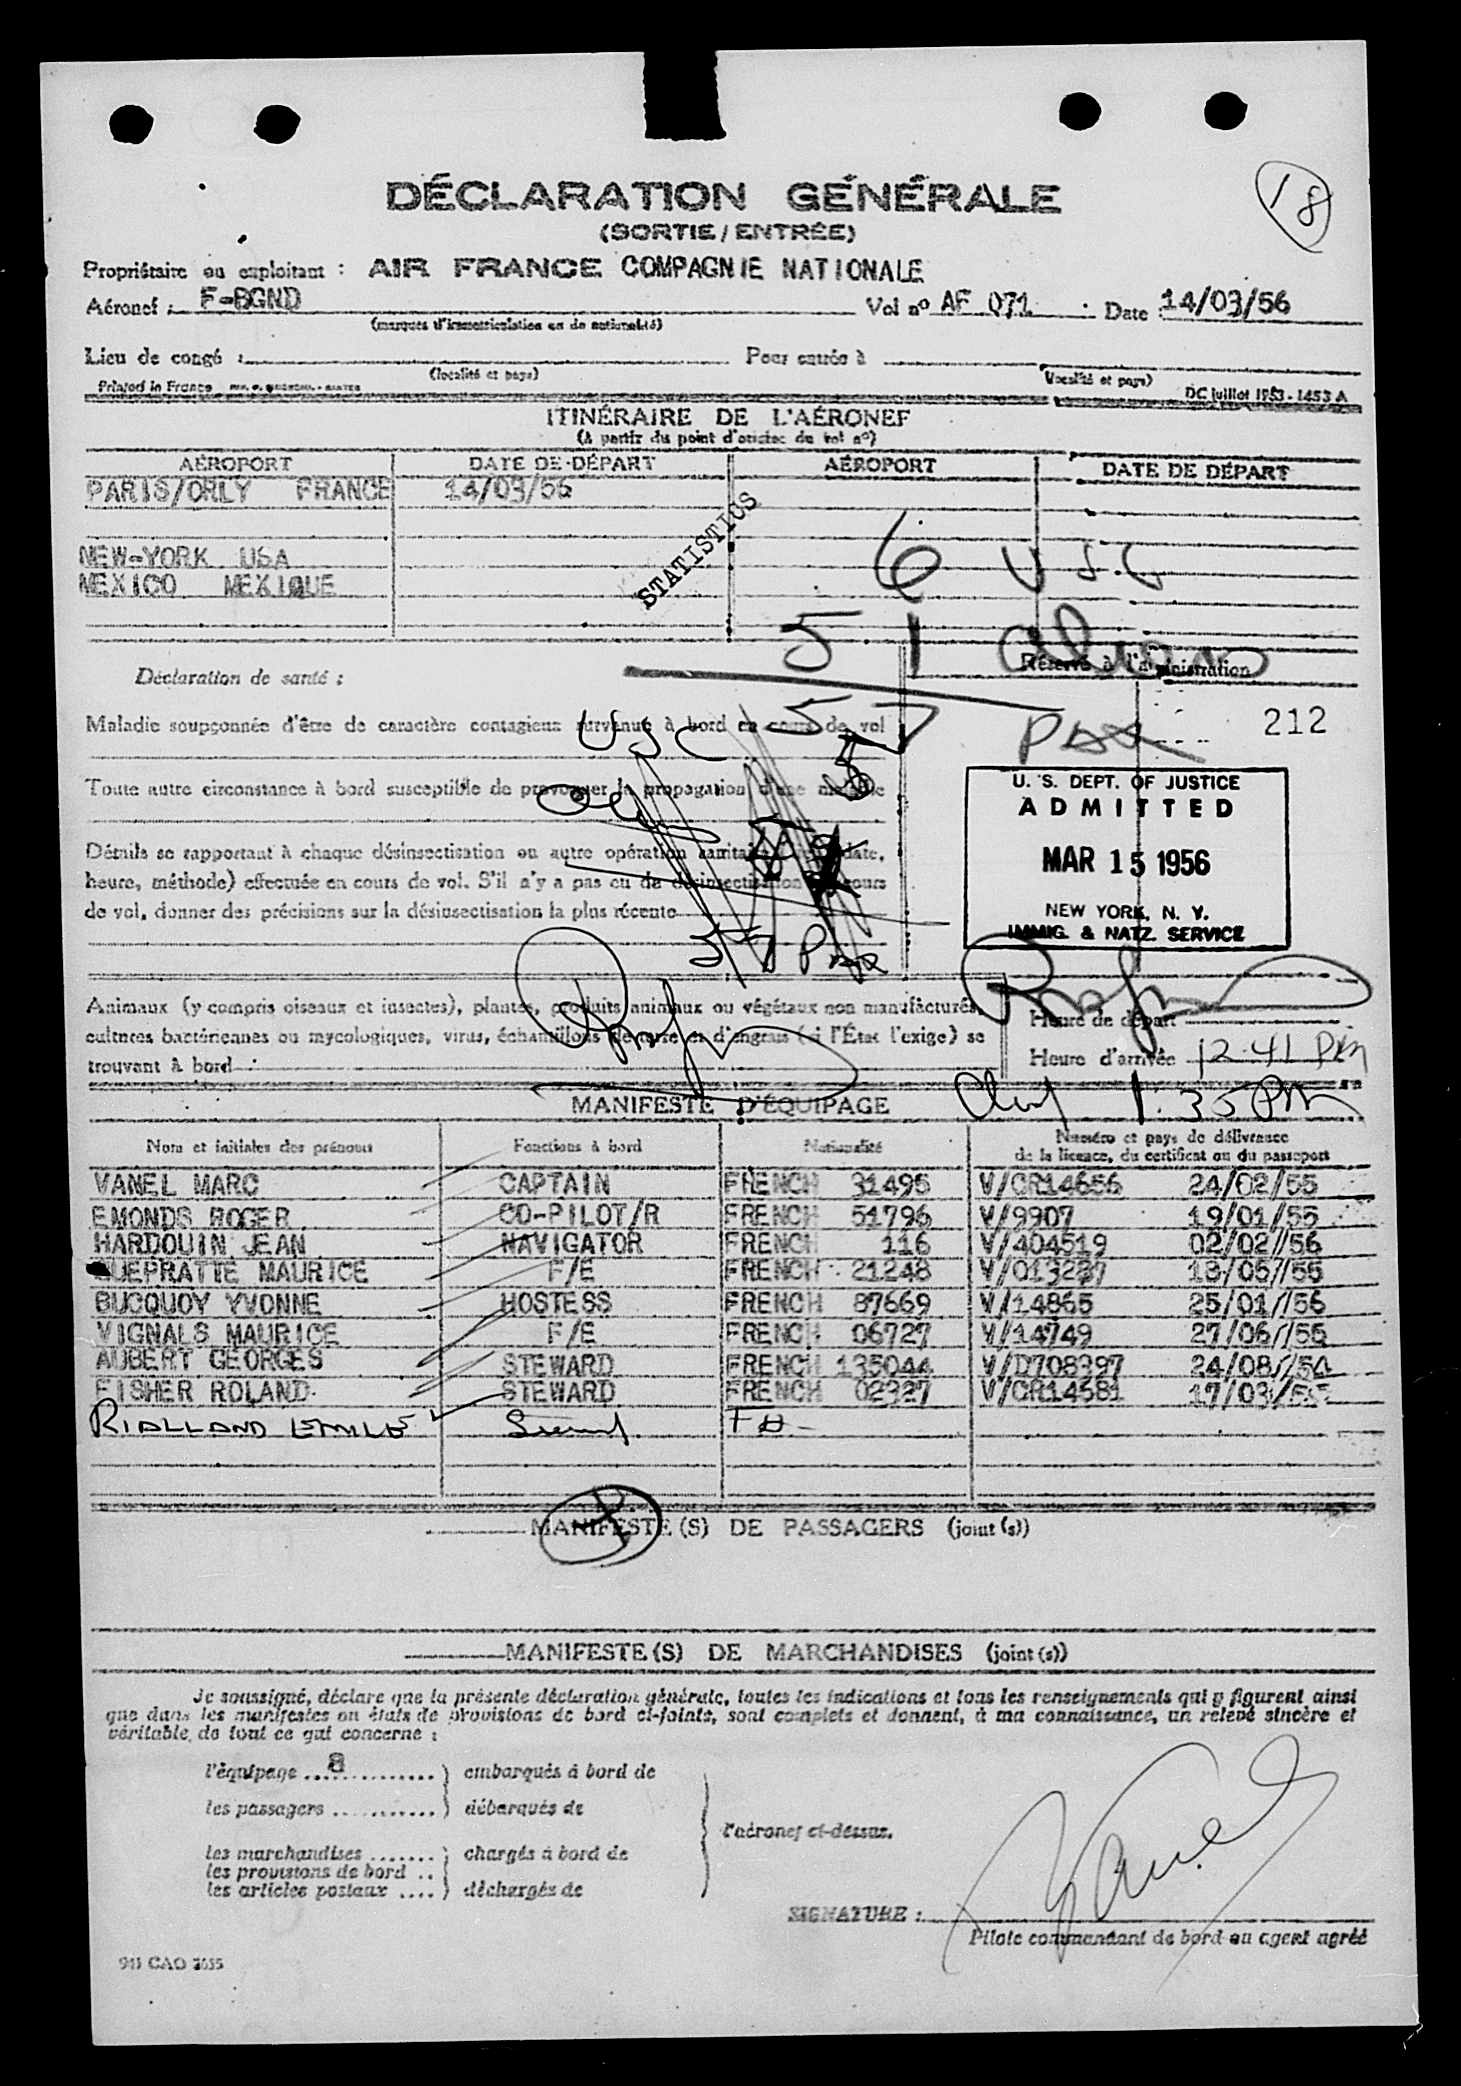 18
DÉCLARATION GÉNÉRALE
(SORTIE / ENTRÉE)
Propriétaire ou exploitant : AIR FRANCE COMPAGNIE NATIONALE
Aéronef : F-BGND Vol nº AF 071 Date : 14/03/56
(marques d'immatriculation et de nationalité)
Lieu de congé : Pour entrée à
(localité et pays) (localité et pays)
Printed in France DC Juillet 1953 - 1453 A
ITINÉRAIRE DE L'AÉRONEF
(à partir du point d'origine du vol nº)
AÉROPORT DATE DE DÉPART AÉROPORT DATE DE DÉPART
PARIS/ORLY FRANCE 14/03/56
STATISTICS
NEW-YORK USA 6 USC
MEXICO MEXIQUE
51 Aliens
Déclaration de santé : Réservé à l'administration
Maladie soupçonnée d'être de caractère contagieux survenue à bord en cours de vol
USC 57 Pax 212
Toute autre circonstance à bord susceptible de provoquer la propagation d'une maladie
U. S. DEPT. OF JUSTICE
ADMITTED
MAR 15 1956
NEW YORK, N. Y.
IMMIG. & NATZ. SERVICE
Détails se rapportant à chaque désinsectisation ou autre opération sanitaire date,
heure, méthode) effectuée en cours de vol. S'il n'y a pas eu de désinsectisation cours
de vol, donner des précisions sur la désinsectisation la plus récente
57 Pax
Animaux (y compris oiseaux et insectes), plantes, produits animaux ou végétaux non manufacturés,
cultures bactériennes ou mycologiques, virus, échantillons de terre et d'engrais (si l'État l'exige) se
trouvant à bord :
Heure de départ
Heure d'arrivée 12.41 PM
1.35 PM
MANIFESTE D'ÉQUIPAGE
Nom et initiales des prénoms Fonctions à bord Nationalité Numéro et pays de délivrance
de la licence, du certificat ou du passeport
VANEL MARC CAPTAIN FRENCH 31495 V/CR14656 24/02/55
EMONDS ROGER CO-PILOT/R FRENCH 51796 V/9907 19/01/55
HARDOUIN JEAN NAVIGATOR FRENCH 116 V/404519 02/02/56
GUEPRATTE MAURICE F/E FRENCH 21248 V/013237 18/05/55
BUCQUOY YVONNE HOSTESS FRENCH 87669 V/14865 25/01/56
VIGNALS MAURICE F/E FRENCH 06727 V/14749 27/06/55
AUBERT GEORGES STEWARD FRENCH 135044 V/D708397 24/08/54
FISHER ROLAND STEWARD FRENCH 02327 V/CR14681 17/03/55
RIALLAND EMILE
MANIFESTE (S) DE PASSAGERS (joint (s))
MANIFESTE (S) DE MARCHANDISES (joint (s))
Je soussigné, déclare que la présente déclaration générale, toutes les indications et tous les renseignements qui y figurent ainsi
que dans les manifestes ou états de provisions de bord ci-joints, sont complets et donnent, à ma connaissance, un relevé sincère et
véritable de tout ce qui concerne :
l'équipage ...8............ ) embarqués à bord de
les passagers ........... ) débarqués de
l'aéronef ci-dessus.
les marchandises ....... ) chargés à bord de
les provisions de bord ..
les articles postaux .... ) déchargés de
SIGNATURE : Vanel
Pilote commandant de bord ou agent agréé